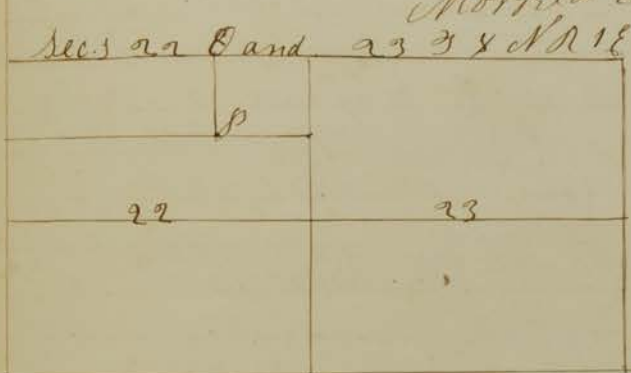 Secs 22 & and 23 T X N R 1 E
P
22 23